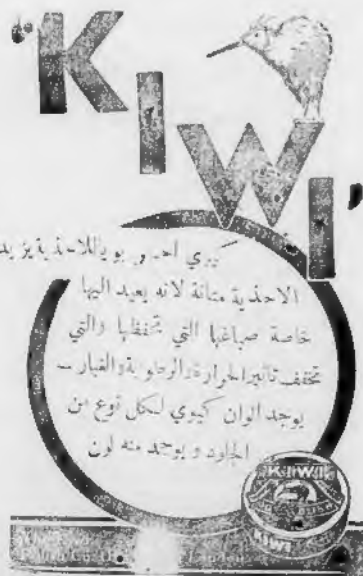 "KIWI"
كيوي احسن بويا للاحذية يزيد
الاحذية متانة لانه يعيد اليها
خاصة صباغها التي تحفظها والتي
تخفف تاثير الحرارة والرطوبة والغبار ـــ
يوجد الوان كيوي لكل نوع من
الجلود ويوجد منه لون
KIWI
KIWI
Polish London